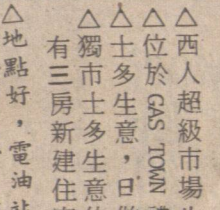 △西人超級市場
△位於 GAS TOWN
△士多生意，日
△獨市士多生意
有三房新建住
△地點好，電油